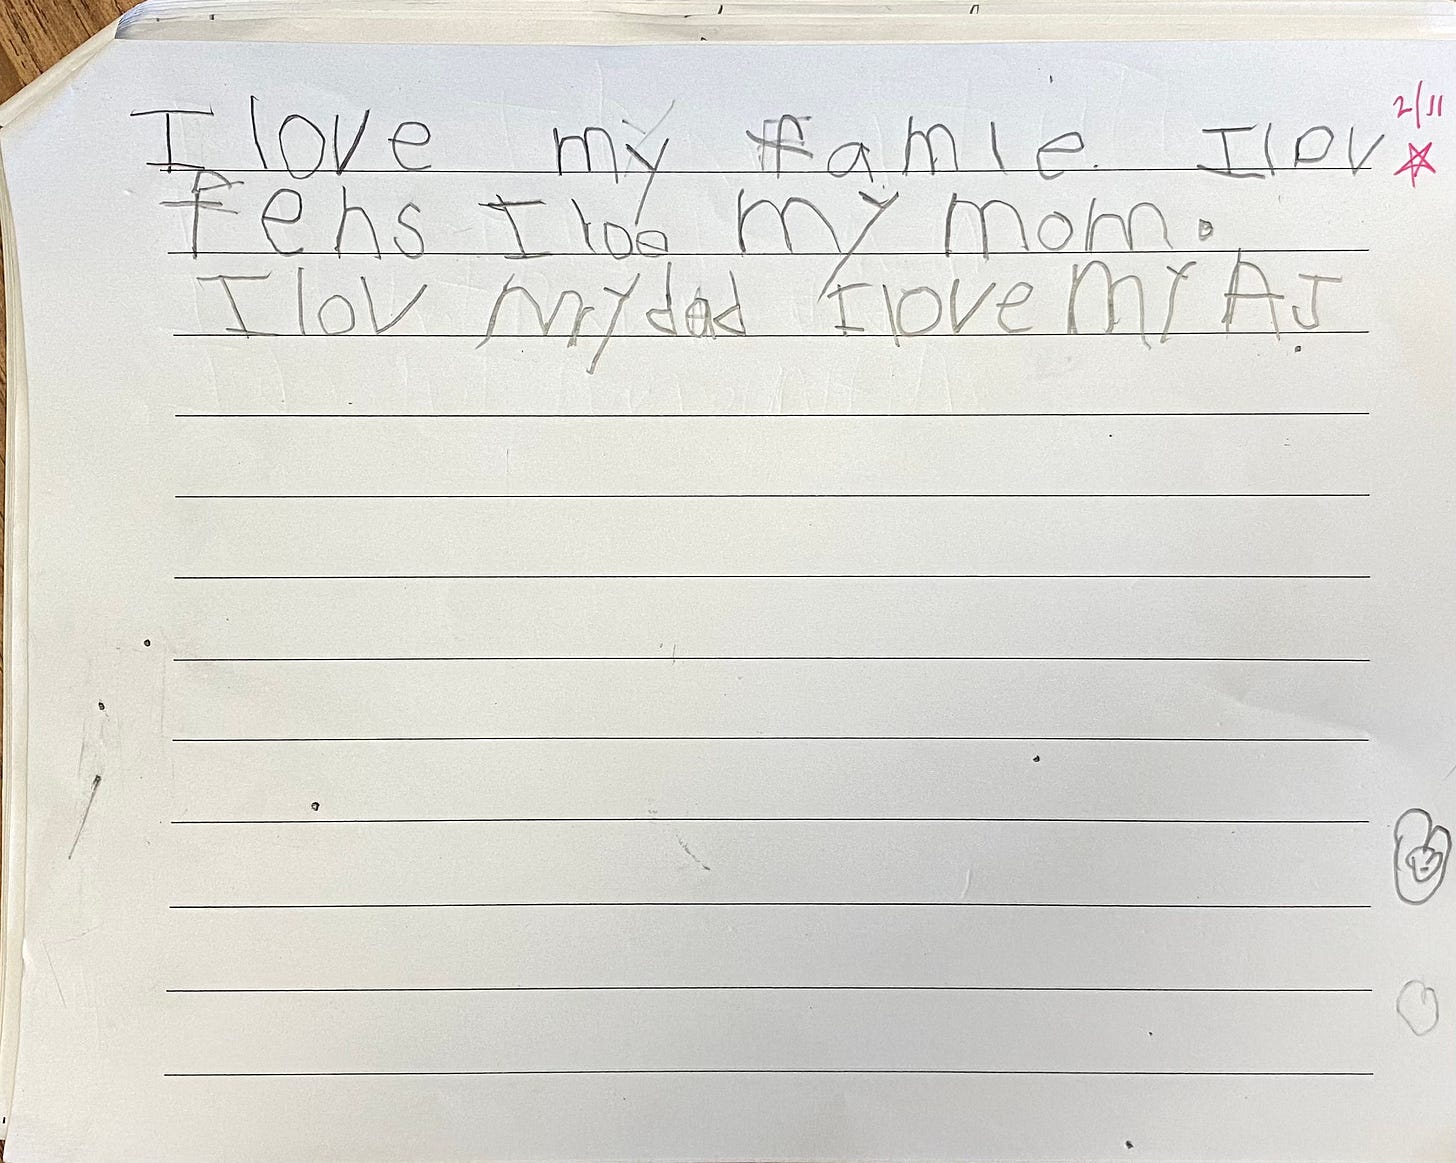 I love my famle. I lov
2/11
fens I loe my mom.
I lov my dad I love my AJ